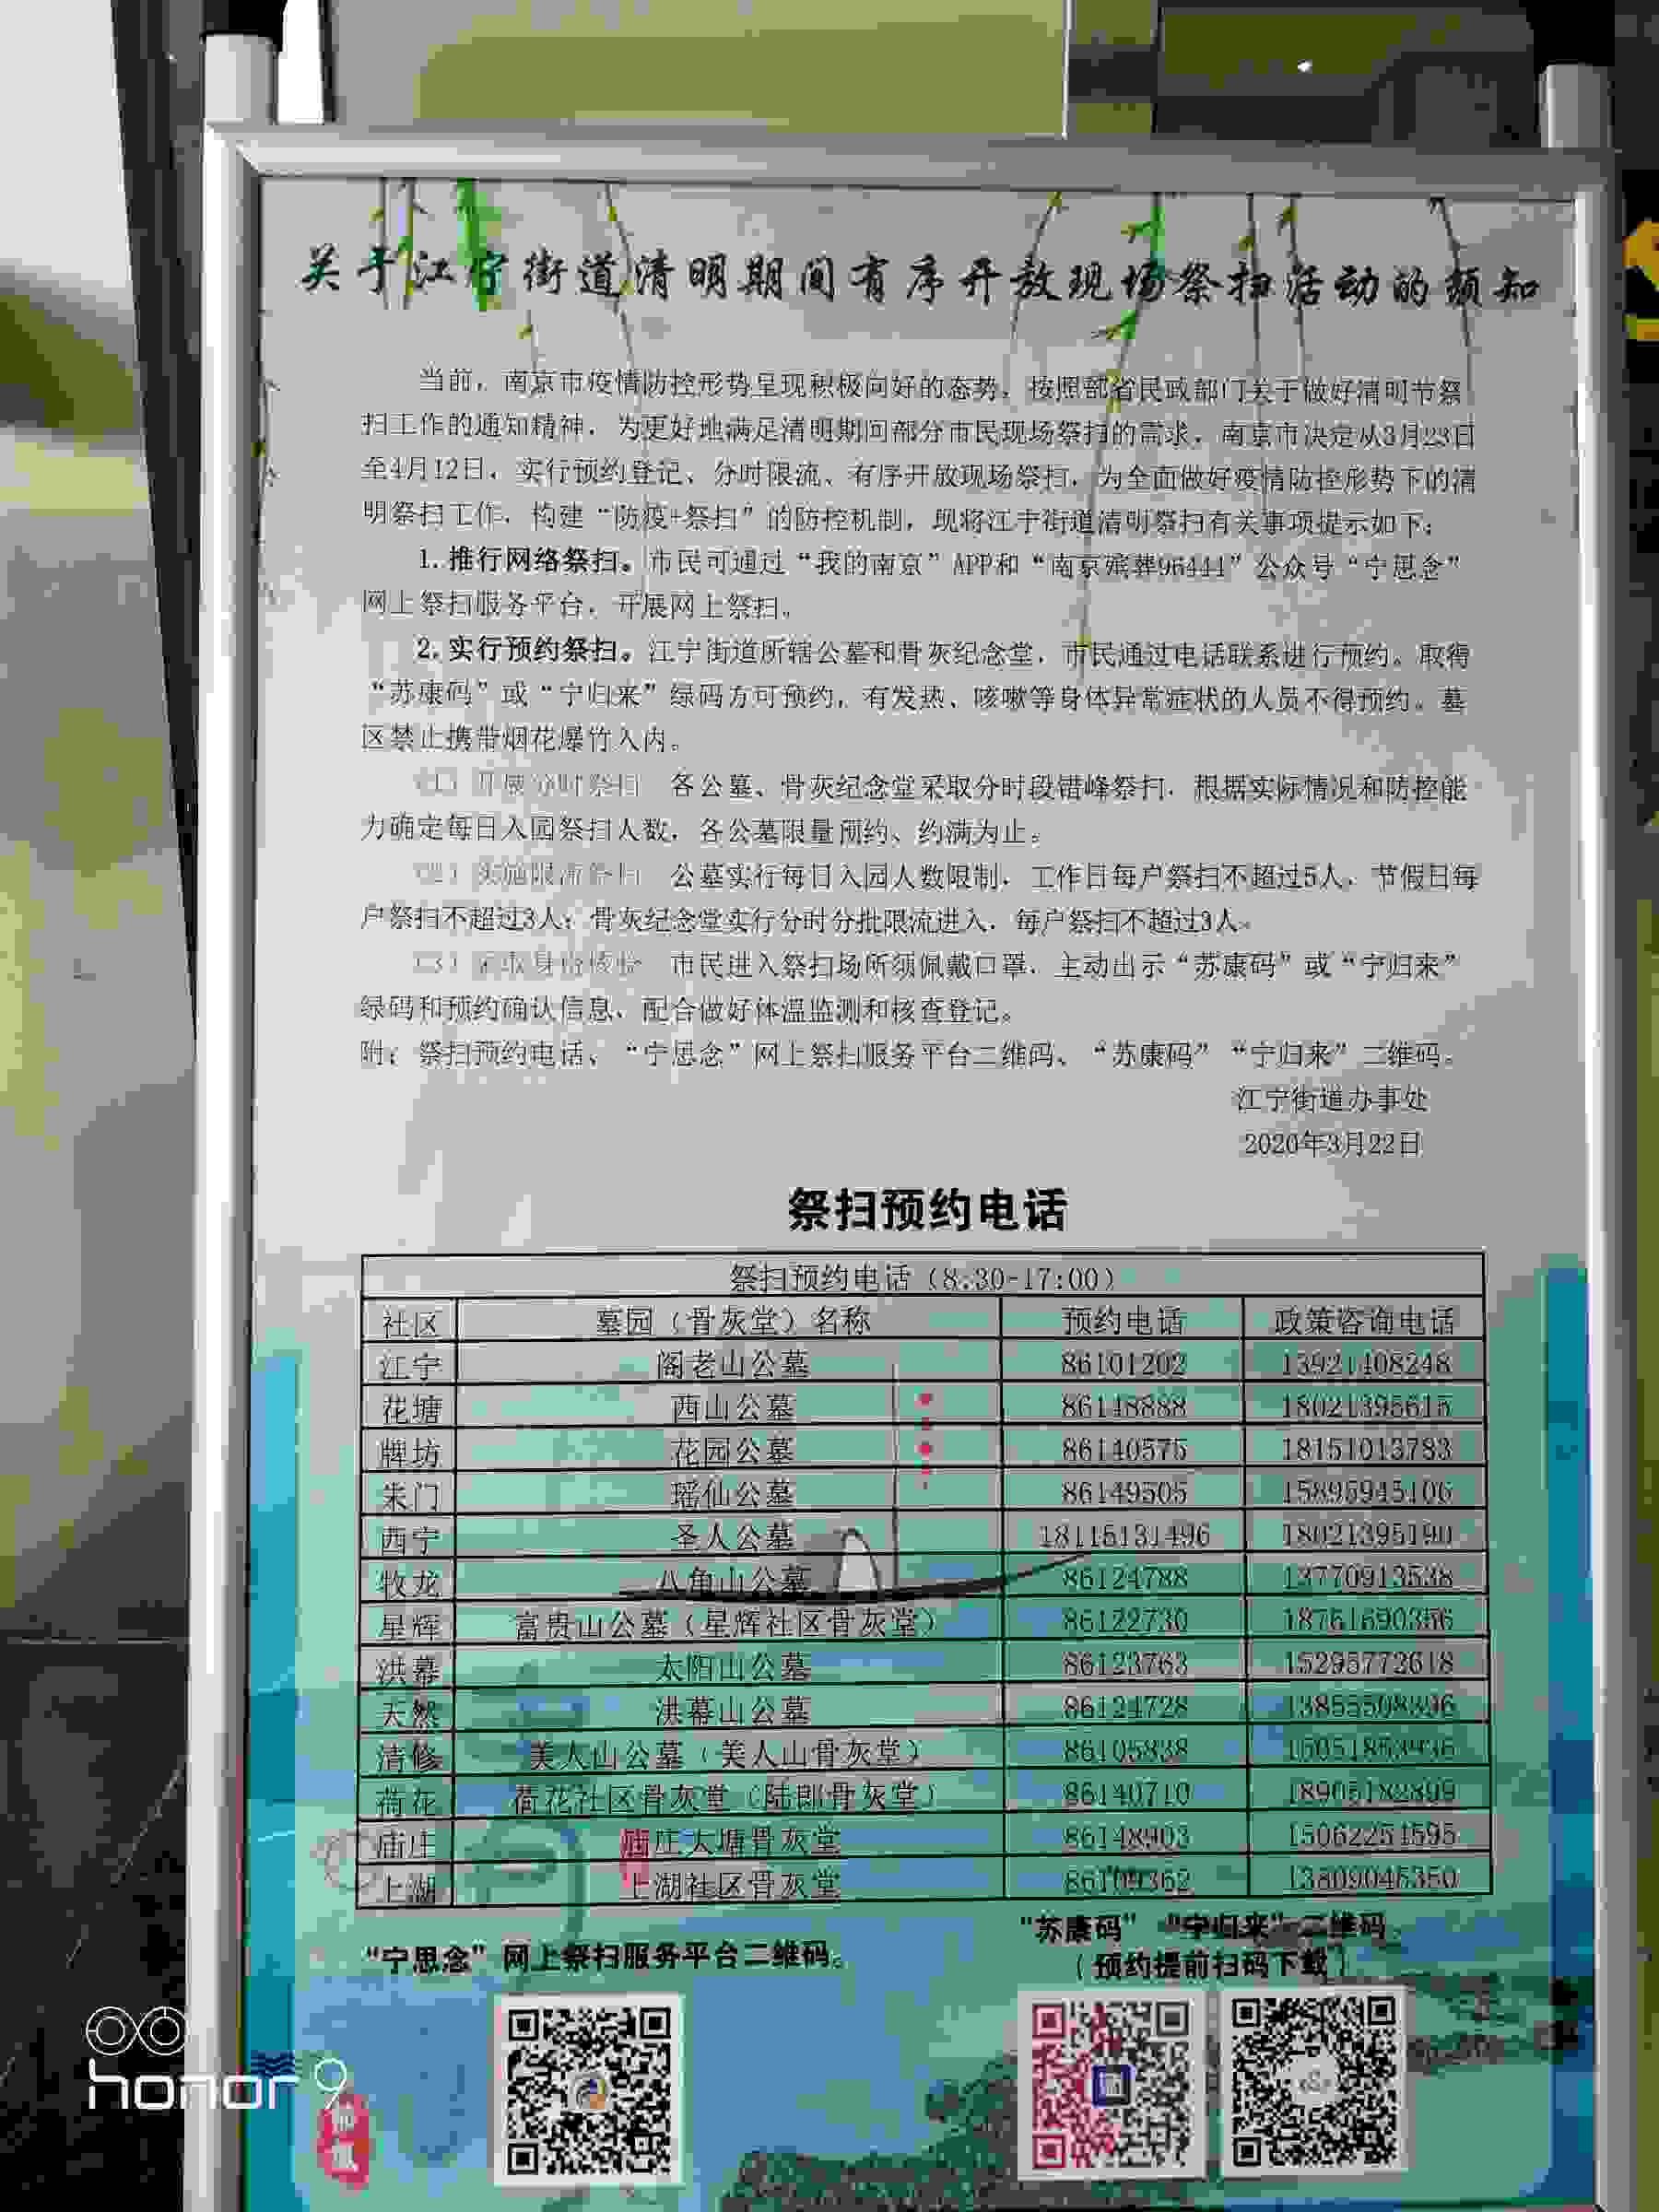 关于江宁街道清明期间有序开放现场祭扫活动的须知
当前，南京市疫情防控形势呈现积极向好的态势，按照部省民政部门关于做好清明节祭
扫工作的通知精神，为更好地满足清明期间部分市民现场祭扫的需求，南京市决定从3月23日
至4月12日，实行预约登记、分时限流、有序开放现场祭扫，为全面做好疫情防控形势下的清
明祭扫工作，构建“防疫+祭扫”的防控机制，现将江宁街道清明祭扫有关事项提示如下：
1. 推行网络祭扫。市民可通过“我的南京”APP和“南京殡葬96444”公众号“宁思念”
网上祭扫服务平台，开展网上祭扫。
2. 实行预约祭扫。江宁街道所辖公墓和骨灰纪念堂，市民通过电话联系进行预约。取得
“苏康码”或“宁归来”绿码方可预约，有发热、咳嗽等身体异常症状的人员不得预约。墓
区禁止携带烟花爆竹入内。
（1）开展分时祭扫 各公墓、骨灰纪念堂采取分时段错峰祭扫，根据实际情况和防控能
力确定每日入园祭扫人数，各公墓限量预约、约满为止。
（2）实施限流祭扫 公墓实行每日入园人数限制，工作日每户祭扫不超过5人，节假日每
户祭扫不超过3人；骨灰纪念堂实行分时分批限流进入，每户祭扫不超过3人。
（3） 市民进入祭扫场所须佩戴口罩，主动出示“苏康码”或“宁归来”
绿码和预约确认信息，配合做好体温监测和核查登记。
附：祭扫预约电话、“宁思念”网上祭扫服务平台二维码、“苏康码”“宁归来”二维码。
江宁街道办事处
2020年3月22日
祭扫预约电话
祭扫预约电话（8:30-17:00）
社区 墓园（骨灰堂）名称 预约电话 政策咨询电话
江宁 阁老山公墓 86101202 13921408248
花塘 西山公墓 86148888 18021395615
牌坊 花园公墓 86140575 18151013783
朱门 瑶仙公墓 86149505 15895945106
西宁 圣人公墓 18115131496 18021395190
牧龙 八角山公墓 86124788 13770913538
星辉 富贵山公墓（星辉社区骨灰堂） 86122730 18761690356
洪幕 太阳山公墓 86123763 15295772618
天然 洪幕山公墓 86124728 13855508396
清修 美人山公墓（美人山骨灰堂） 86105838 15051853936
荷花 荷花社区骨灰堂（陆郎骨灰堂） 86140710 18905182899
庙庄 庙庄大塘骨灰堂 86148903 15062251595
上湖 上湖社区骨灰堂 13809045350
“宁思念”网上祭扫服务平台二维码。
“苏康码” “宁归来”二维码
（预约提前扫码下载）
honor 9